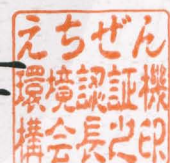 えちぜん
環境認証機
構会長之印